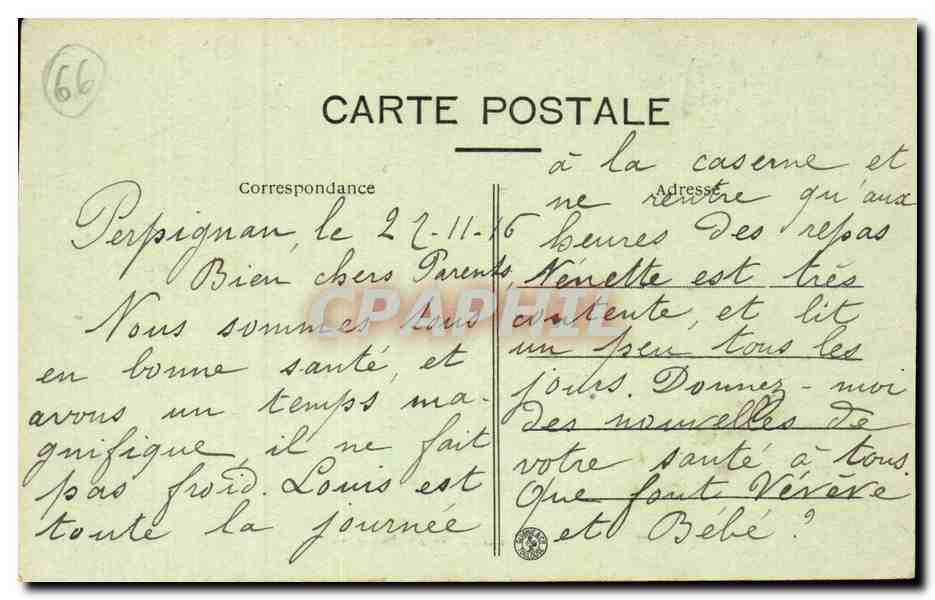 66
CARTE POSTALE
Correspondance
Perpignan, le 27-11-16
Bien chers Parents,
Nous sommes tous
en bonne santé, et
avons un temps ma-
gnifique, il ne fait
pas froid. Louis est
toute la journée
Adresse
à la caserne et
ne rentre qu'aux
heures des repas
Nénette est très
contente, et lit
un peu tous les
jours. Donnez-moi
des nouvelles de
votre santé à tous.
Que font Vévève
et Bébé ?
CPAPHIL